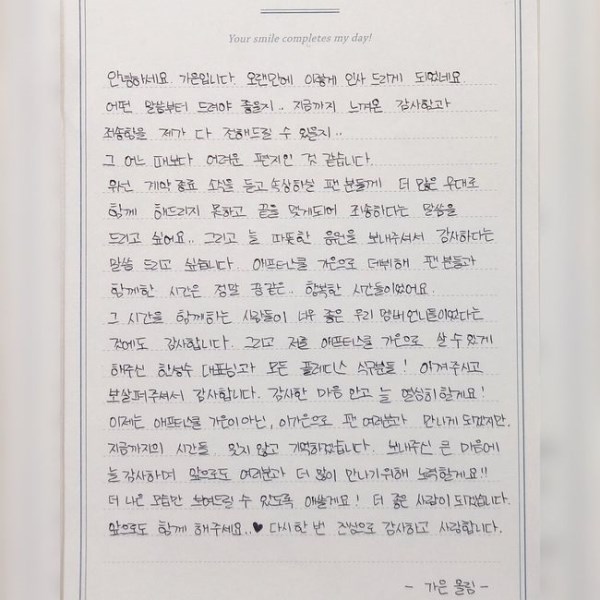 Your smile completes my day!
안녕하세요. 가은입니다. 오랜만에 이렇게 인사 드리게 되었네요.
어떤 말씀부터 드려야 좋을지.. 지금까지 느껴온 감사함과
죄송함을 제가 다 전해드릴 수 있을지..
그 어느 때보다 어려운 편지인 것 같습니다.
우선 계약 종료 소식을 듣고 속상하실 팬 분들께 더 많은 무대로
함께 해드리지 못하고 끝을 맺게되어 죄송하다는 말씀을
드리고 싶어요.. 그리고 늘 따뜻한 응원을 보내주셔서 감사하다는
말씀 드리고 싶습니다. 애프터스쿨 가은으로 데뷔해 팬 분들과
함께한 시간은 정말 꿈같은.. 행복한 시간들이었어요.
그 시간을 함께하는 사람들이 너무 좋은 우리 멤버 언니들이었다는
것에도 감사합니다. 그리고 저를 애프터스쿨 가은으로 살 수 있게
해주신 한성수 대표님과 모든 플레디스 식구분들! 아껴주시고
보살펴주셔서 감사합니다. 감사한 마음 안고 늘 열심히 할게요!
이제는 애프터스쿨 가은이 아닌, 이가은으로 팬 여러분과 만나게 되겠지만,
지금까지의 시간들 잊지 않고 기억하겠습니다. 보내주신 큰 마음에
늘 감사하며 앞으로도 여러분과 더 많이 만나기위해 노력할게요!!
더 나은 모습만 보여드릴 수 있도록 애쓸게요! 더 좋은 사람이 되겠습니다.
앞으로도 함께 해주세요..♥ 다시 한 번 진심으로 감사하고 사랑합니다.
- 가은 올림 -